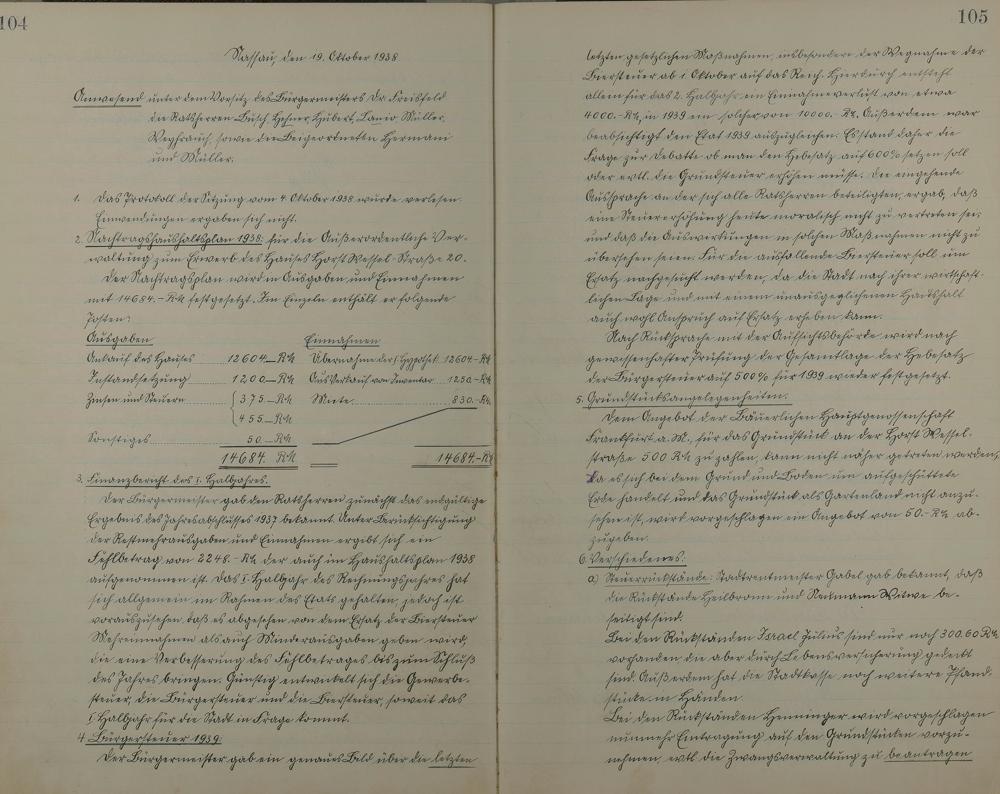 104
Nassau, den 19. Oktober 1938
Anwesend unter dem Vorsitz des Bürgermeisters Dr. Freisfeld
die Ratsherren Busch, Hubert, Lanio, Müller,
Weyhrauch, sowie die Beigeordneten Hermani
und Müller.
1. Das Protokoll der Sitzung vom 4. Oktober 1938 wurde verlesen.
Einwendungen ergaben sich nicht.
2. Nachtragshaushaltsplan 1938: für die Außerordentliche Ver-
waltung zum Erwerb des Hauses Horst Wessel-Straße 20.
Der Nachtragsplan wird in Ausgaben und Einnahmen
mit 14684.- RM festgesetzt. Im Einzeln enthält er folgende
Posten:
Ausgaben Einnahmen
Ankauf des Hauses 12604.- RM Übernahme der I. Hypothek 12604.- RM
Instandsetzung 1200.- RM Aus Verkauf von Inventar 1250.- RM
Zinsen und Steuern { 375.- RM Miete 830.- RM
{ 455.- RM
Sonstiges 50.- RM
14684. RM 14684.- RM
3. Finanzbericht des I. Halbjahres.
Der Bürgermeister gab den Ratsherren zunächst das endgültige
Ergebnis des Jahresabschlusses 1937 bekannt. Unter Berücksichtigung
der Restmehrausgaben und Einnahmen ergibt sich ein
Fehlbetrag von 2248.- RM der auch im Haushaltsplan 1938
aufgenommen ist. Das I. Halbjahr des Rechnungsjahres hat
sich allgemein im Rahmen des Etats gehalten, jedoch ist
vorauszusehen, daß es abgesehen von dem Ersatz der Biersteuer
Mehreinnahmen als auch Minderausgaben geben wird,
die eine Verbesserung des Fehlbetrages bis zum Schluß
des Jahres bringen. Günstig entwickelt sich die Gewerbe-
steuer, die Bürgersteuer und die Biersteuer, soweit das
I. Halbjahr für die Stadt in Frage kommt.
4. Bürgersteuer 1939:
Der Bürgermeister gab ein genaues Bild über die letzten
105
letzten gesetzlichen Maßnahmen, insbesondere der Wegnahme der
Biersteuer ab 1. Oktober auf das Reich. Hierdurch entsteht
allein für das 2. Halbjahr ein Einnahmeverlust von etwa
4000.- RM, in 1939 ein solcher von 10000.- RM. Außerdem war
beabsichtigt den Etat 1939 auszugleichen. Es stand daher die
Frage zur Debatte ob man den Hebesatz auf 600% setzen soll
oder evtl. die Grundsteuer erhöhen müsse. Die eingehende
Aussprache an der sich alle Ratsherren beteiligten, ergab, daß
eine Steuererhöhung heute moralisch nicht zu vertreten sei,
und daß die Auswirkungen in solchen Maßnahmen nicht zu
übersehen seien. Für die ausfallende Biersteuer soll um
Ersatz nachgesucht werden, da die Stadt nach ihrer wirtschaft-
lichen Lage und mit einem unausgeglichenen Haushalt
auch wohl Anspruch auf Ersatz erheben kann.
Nach Rücksprache mit der Aufsichtsbehörde wird nach
gewissenhafter Prüfung der Gesamtlage der Hebesatz
der Bürgersteuer auf 500% für 1939 wieder festgesetzt.
5. Grundstücksangelegenheiten.
Dem Angebot der Bäuerlichen Hauptgenossenschaft
Frankfurt a. M., für das Grundstück an der Horst Wessel-
straße 500 RM zu zahlen, kann nicht näher getreten werden,
da es sich bei dem Grund und Boden um aufgeschüttete
Erde handelt und das Grundstück als Gartenland nicht anzu-
sehen ist, wird vorgeschlagen ein Angebot von 50.- RM ab-
zugeben.
6. Verschiedenes:
a) Steuerrückstände: Stadtrentmeister Gabel gab bekannt, daß
die Rückstände Heilbronn und Neckmann Witwe be-
seitigt sind.
Bei den Rückständen Israel Julius sind nur noch 300.60 RM
vorhanden, die aber durch Lebensversicherung gedeckt
sind. Außerdem hat die Stadtkasse noch weitere Pfand-
stücke in Händen.
Bei den Rückständen Henninger wird vorgeschlagen
nunmehr Eintragung auf den Grundstücken vorzu-
nehmen, evtl. die Zwangsverwaltung zu beantragen